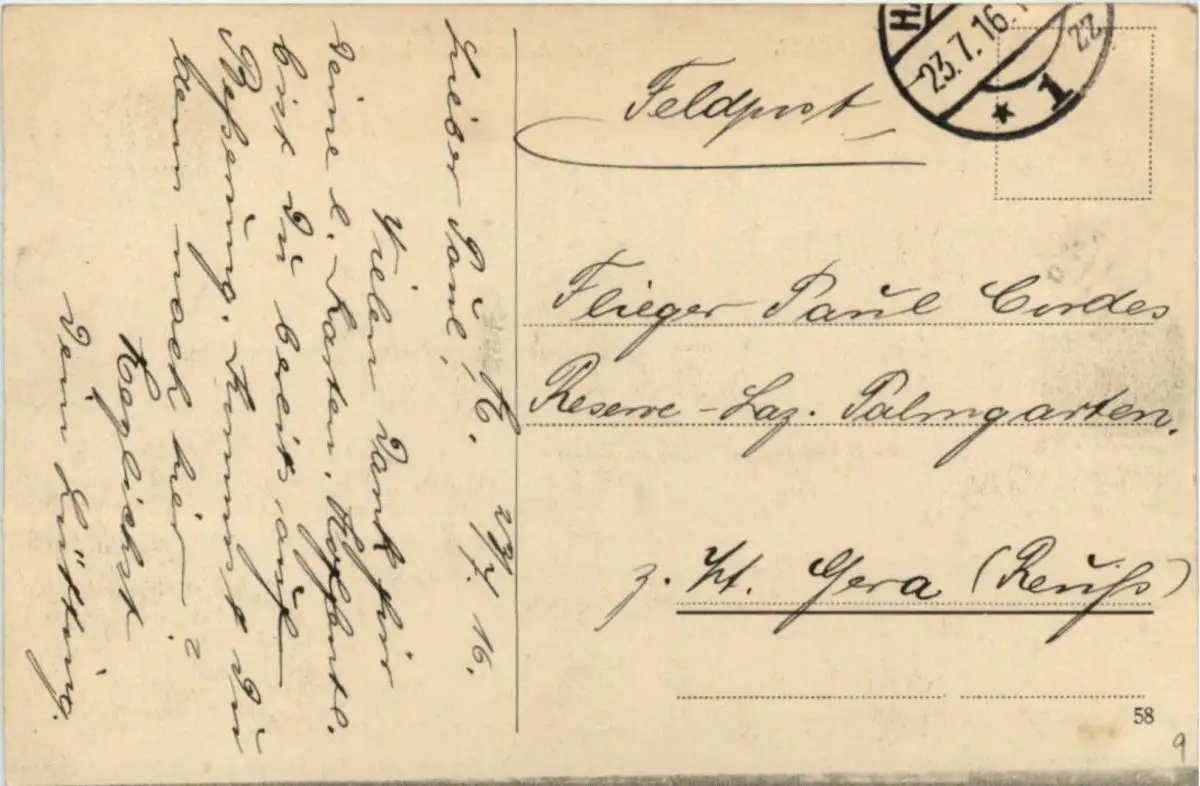 H. 23/7.16.
Lieber Paul,
Vielen Dank für
deine l. Karten. Hoffentl.
bist Du bereits auf
Beßerung. Kommst Du
denn nach hier?
Herzlichst
Dein Lütting.
Feldpost
23.7.16.
* 1 zz
Flieger Paul Cordes
Reserve-Laz. Palmgarten.
z. Zt. Gera (Reuß)
58
9